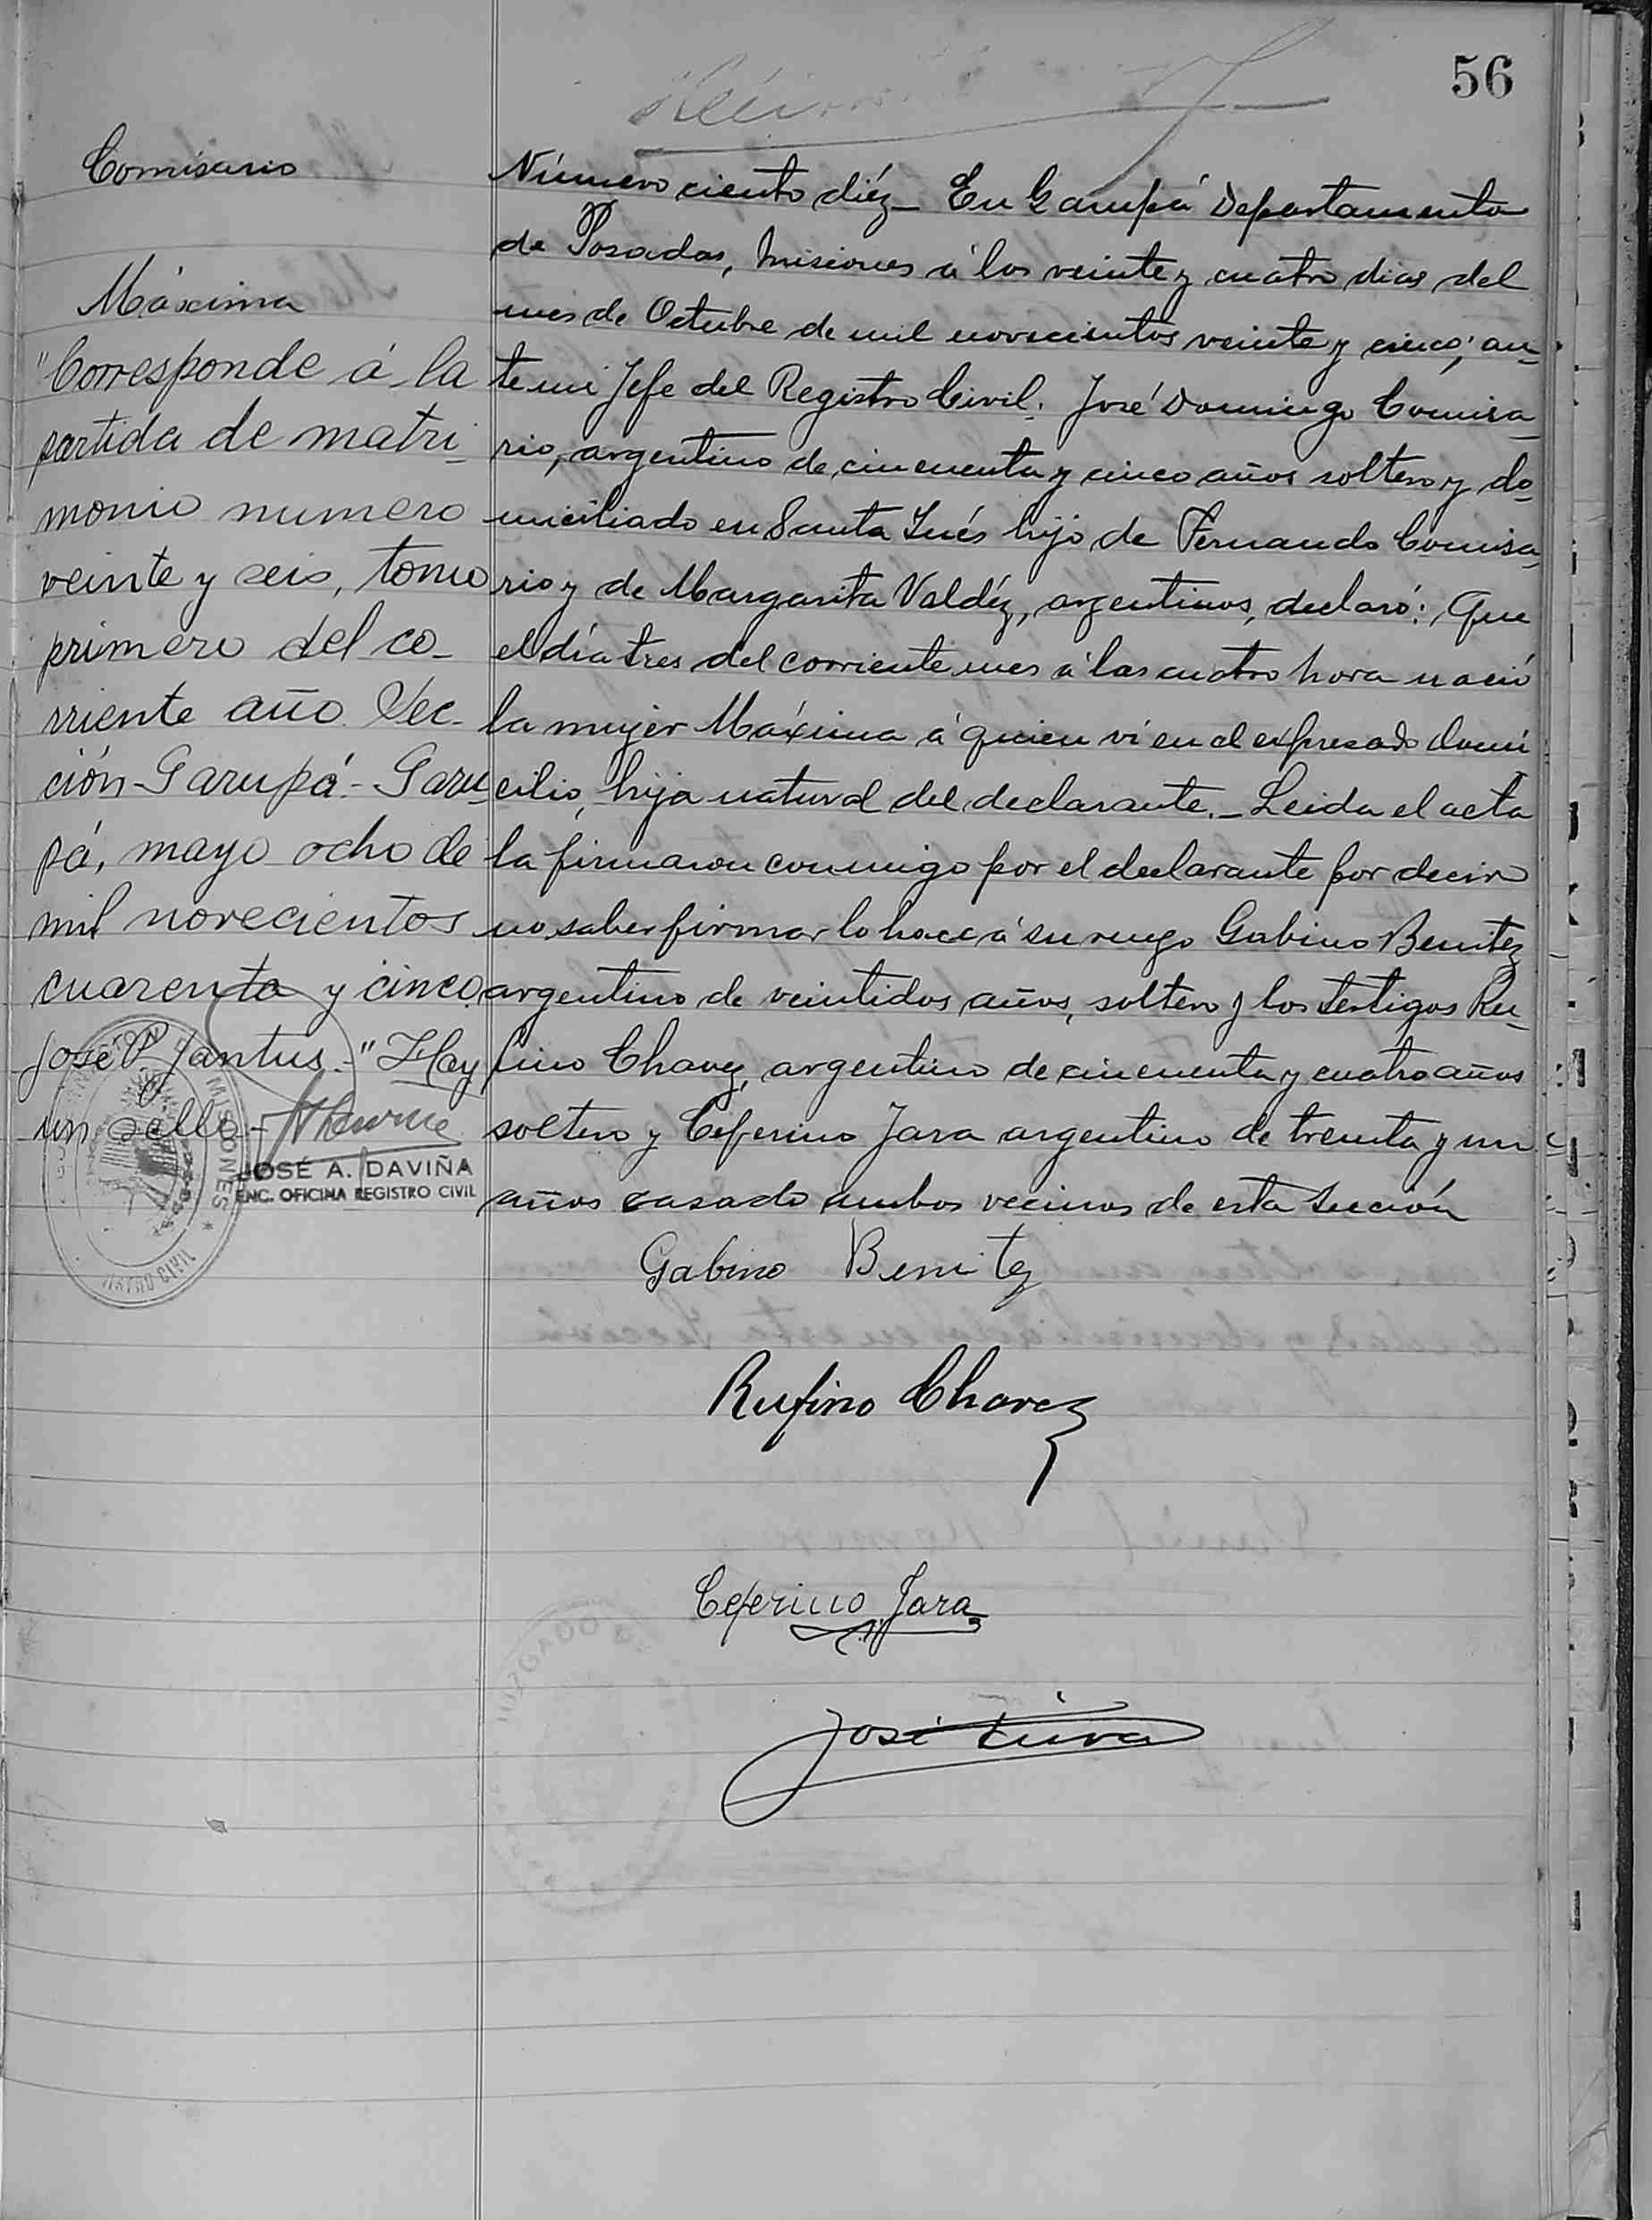 56
Comisario
Máxima
"Corresponde á la
partida de matri-
monio numero
veinte y seis, tomo
primero del co-
rriente año. Sec-
ción Garupá - Garu-
pá, mayo ocho de
mil novecientos
cuarenta y cinco.
José P. Jantus." Hay
un sello -
JOSÉ A. DAVIÑA
ENC. OFICINA REGISTRO CIVIL
MISIONES
Número ciento diéz - En Garupá Departamento
de Posadas, Misiones á los veinte y cuatro dias del
mes de Octubre de mil novecientos veinte y cinco; an-
te mi Jefe del Registro Civil: José Domingo Comisa-
rio, argentino de cincuenta y cinco años soltero y do-
miciliado en Santa Inés hijo de Fernando Comisa-
rio y de Margarita Valdéz, argentinos, declaró: Que
el día tres del corriente mes á las cuatro hora nació
la mujer Máxima á quien ví en el expresado domi
cilio, hija natural del declarante. - Leida el acta
la firmaron conmigo por el declarante por decir
no saber firmar lo hace á su ruego Gabino Benitez
argentino de veintidos años, soltero y los testigos Ru-
fino Chavez, argentino de cincuenta y cuatro años
soltero y Ceferino Jara argentino de treinta y un
años casado ambos vecinos de esta Sección
Gabino Benitez
Rufino Chavez
Ceferino Jara
José
JUZGADO